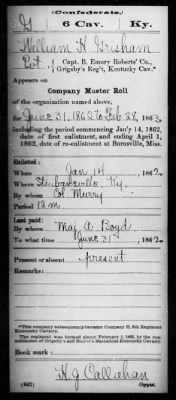 (Confederate.)
G 6 Cav. Ky.
William H Grisham
Pvt., Capt. B. Emory Roberts' Co.,
Grigsby's Reg't, Kentucky Cav.*
Appears on
Company Muster Roll
of the organization named above,
for June 31, 1862 to Feb 28, 1863.
including the period commencing Jan'y 14, 1862,
date of first enlistment, and ending April 1,
1862, date of re-enlistment at Burnsville, Miss.
Enlisted:
When Jan 14, 1862.
Where Steubanville, Ky.
By whom Col. Murry
Period 12 m
Last paid:
By whom Maj A. Boyd
To what time June 31st, 1862.
Present or absent present
Remarks:
*This company subsequently became Company H, 6th Regiment
Kentucky Cavalry.
The regiment was formed about February 1, 1863, by the con-
solidation of Grigsby's and Butler's Battalions Kentucky Cavalry.
Book mark:
H. G. Callahan
(642) Copyist.